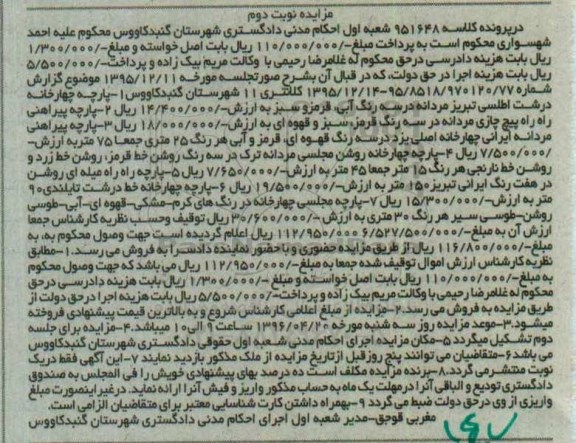 مزایده نوبت دوم
درپرونده کلاسه ۹۵۱۶۴۸ شعبه اول احکام مدنی دادگستری شهرستان گنبدکاووس محکوم علیه احمد
شهسواری محکوم است به پرداخت مبلغ-/۱۱۰/۰۰۰/۰۰۰ ریال بابت اصل خواسته و مبلغ-/۱/۳۰۰/۰۰۰
ریال بابت هزینه دادرسی درحق محکوم له غلامرضا رحیمی با وکالت مریم بیک زاده و پرداخت-/۵/۵۰۰/۰۰۰
ریال بابت هزینه اجرا در حق دولت، که در قبال آن بشرح صورتجلسه مورخه ۱۳۹۵/۱۲/۱۱ موضوع گزارش
شماره ۹۵/۸۵۱۸/۹۷۰۱۲۰/۷۷-۱۳۹۵/۱۲/۱۴ کلانتری ۱۱ شهرستان گنبدکاووس۱-پارچه چهارخانه
درشت اطلسی تبریز مردانه درسه رنگ آبی، قرمزو سبز به ارزش-/۱۴/۴۰۰/۰۰۰ ریال ۲-پارچه پیراهنی
راه راه پیچ چازی مردانه در سه رنگ قرمز، سبز و قهوه ای به ارزش-/۱۸/۰۰۰/۰۰۰ ریال ۳-پارچه پیراهنی
مردانه ایرانی چهارخانه اصلی یزد درسه رنگ قهوه ای، قرمز و آبی هر رنگ ۲۵ متری جمعا ۷۵ متربه ارزش-
/۷/۵۰۰/۰۰۰ ریال ۴-پارچه چهارخانه روشن مجلسی مردانه ترک در سه رنگ روشن خط قرمز، روشن خط زرد و
روشن خط نارنجی هر رنگ ۱۵ متر جمعا ۴۵ متر به ارزش-/۷/۶۵۰/۰۰۰ ریال ۵-پارچه راه راه میله ای روشن
در هفت رنگ ایرانی تبریز۱۵۰ متر به ارزش-/۱۹/۵۰۰/۰۰۰ ریال ۶-پارچه چهارخانه خط درشت تایلندی۹۰
متر به ارزش-/۱۵/۳۰۰/۰۰۰ ریال ۷-پارچه مجلسی چهارخانه در رنگ های کرم-مشکی-قهوه ای-آبی-طوسی
روشن-طوسی سیر هر رنگ ۳۰ متری به ارزش-/۳۰/۶۰۰/۰۰۰ ریال توقیف وحسب نظریه کارشناس جمعا
ارزش آن به مبلغ-/۶/۵۲۷/۵۰۰/۰۰۰ ۱۱۲/۹۵۰/۰۰۰ ریال اعلام گردیده است جهت وصول محکوم به، به
مبلغ-/۱۱۶/۸۰۰/۰۰۰ ریال از طریق مزایده حضوری و با حضور نماینده دادسرا به فروش می رسد.۱-مطابق
نظریه کارشناس ارزش اموال توقیف شده جمعا به مبلغ-/۱۱۲/۹۵۰/۰۰۰ ریال می باشد که جهت وصول محکوم
به مبلغ-/۱۱۰/۰۰۰/۰۰۰ ریال بابت اصل خواسته و مبلغ -/۱/۳۰۰/۰۰۰ ریال بابت هزینه دادرسی درحق
محکوم له غلامرضا رحیمی با وکالت مریم بیک زاده و پرداخت-/۵/۵۰۰/۰۰۰ ریال بابت هزینه اجرا درحق دولت از
طریق مزایده به فروش می رسد.۲-مزایده از مبلغ اعلامی کارشناس شروع و به بالاترین قیمت پیشنهادی فروخته
میشود.۳-موعد مزایده روز سه شنبه مورخه ۱۳۹۶/۰۴/۲۰ ساعت ۹ الی۱۰ میباشد.۴-مزایده برای جلسه
دوم تشکیل میگردد ۵-مکان مزایده اجرای احکام مدنی شعبه اول حقوقی دادگستری شهرستان گنبدکاووس
می باشد۶-متقاضیان می توانند پنج روزقبل ازتاریخ مزایده از ملک مذکور بازدید نمایند ۷-این آگهی فقط دریک
نوبت منتشرمی گردد.۸-برنده مزایده مکلف است ده درصد بهای پیشنهادی خویش را فی المجلس به صندوق
دادگستری تودیع و الباقی آنرا درمهلت یک ماه به حساب مذکور واریز و فیش آنرا ارائه نماید. درغیر اینصورت مبلغ
واریزی از وی درحق دولت ضبط می گردد ۹-بهمراه داشتن کارت شناسایی معتبر برای متقاضیان الزامی است.
مغربی قوجق-مدیر شعبه اول اجرای احکام مدنی دادگستری شهرستان گنبدکاووس